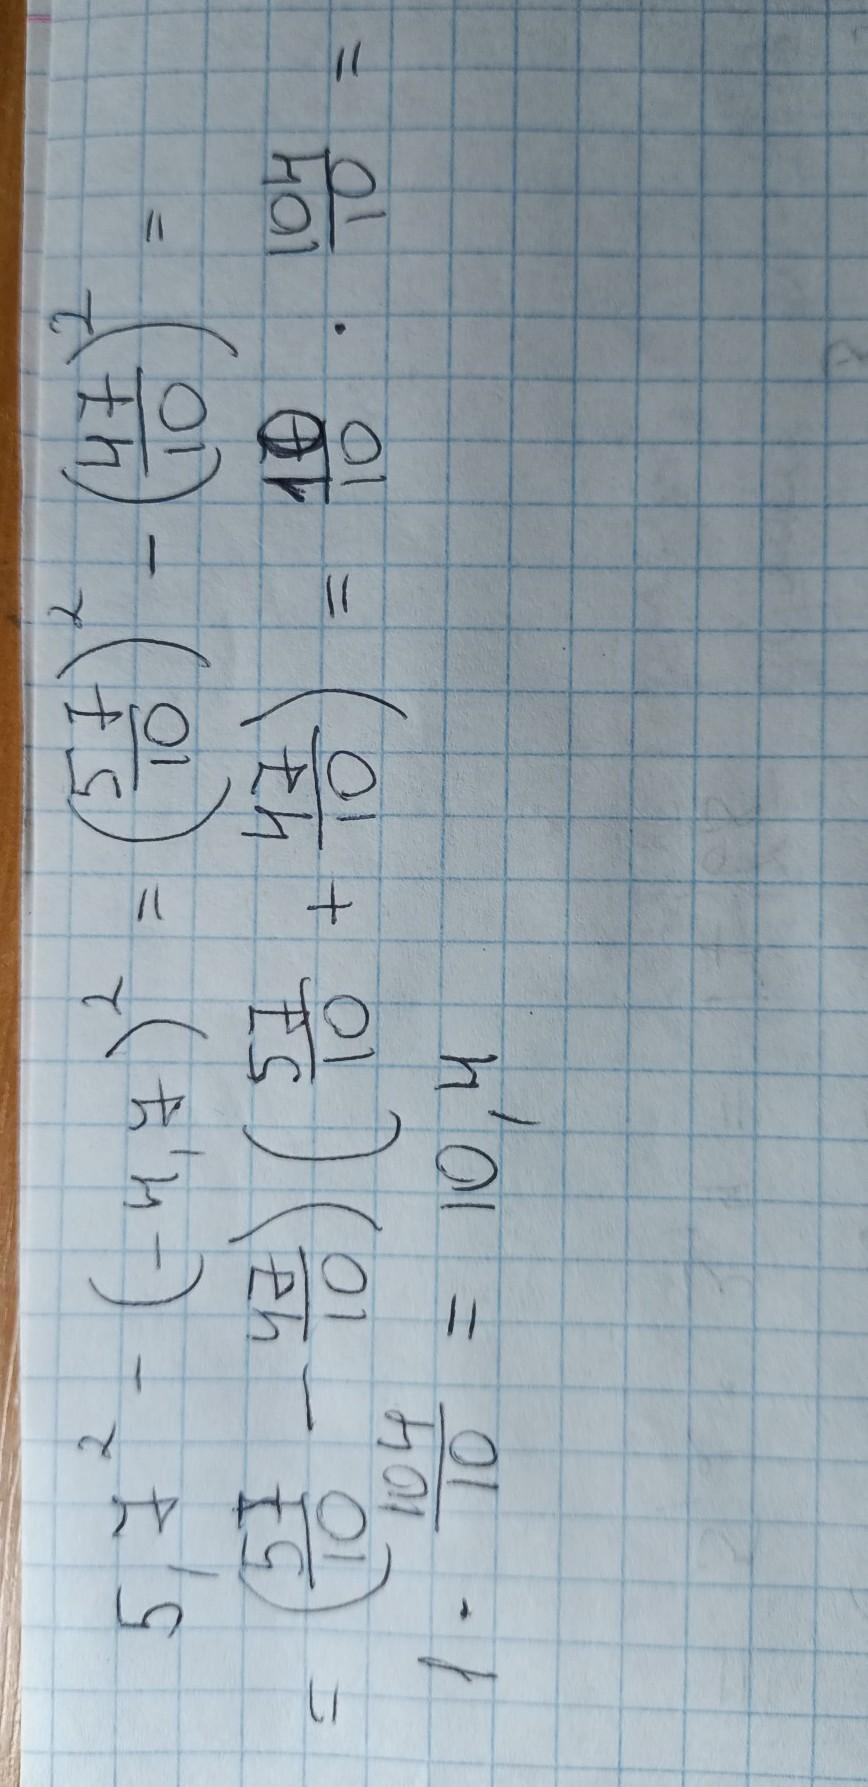 5,7² - (-4,7)² = (57/10)² - (47/10)² =
= (57/10 - 47/10)(57/10 + 47/10) = 10/10 · 104/10 =
1 · 104/10 = 10,4